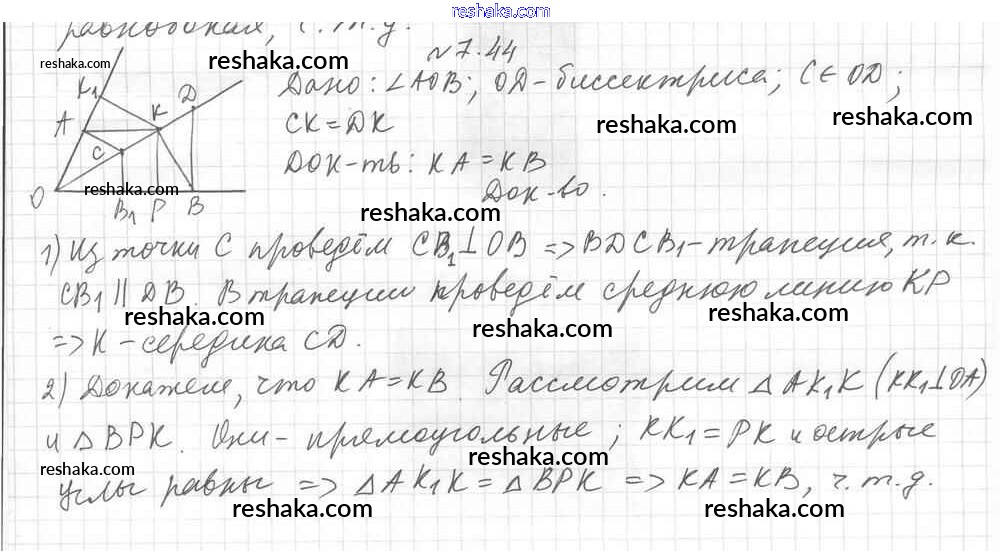 reshaka.com
равнобокая, ч.т.д.
№7.44
Дано: ∠AOB; OD-биссектриса; C∈OD;
CK=DK
Док-ть: KA=KB
Док-во.
K₁ A C K D O B₁ P B
1) Из точки C проведём CB₁⊥OB => BDCB₁-трапеция, т.к.
CB₁ || DB. В трапеции проведём среднюю линию KP
=> K-середина CD.
2) Докажем, что KA=KB. Рассмотрим △AK₁K (KK₁⊥OA)
и △BPK. Они-прямоугольные; KK₁=PK и острые
углы равны => △AK₁K=△BPK => KA=KB, ч.т.д.
reshaka.com
reshaka.com
reshaka.com
reshaka.com
reshaka.com
reshaka.com
reshaka.com
reshaka.com
reshaka.com
reshaka.com
reshaka.com
reshaka.com
reshaka.com
reshaka.com